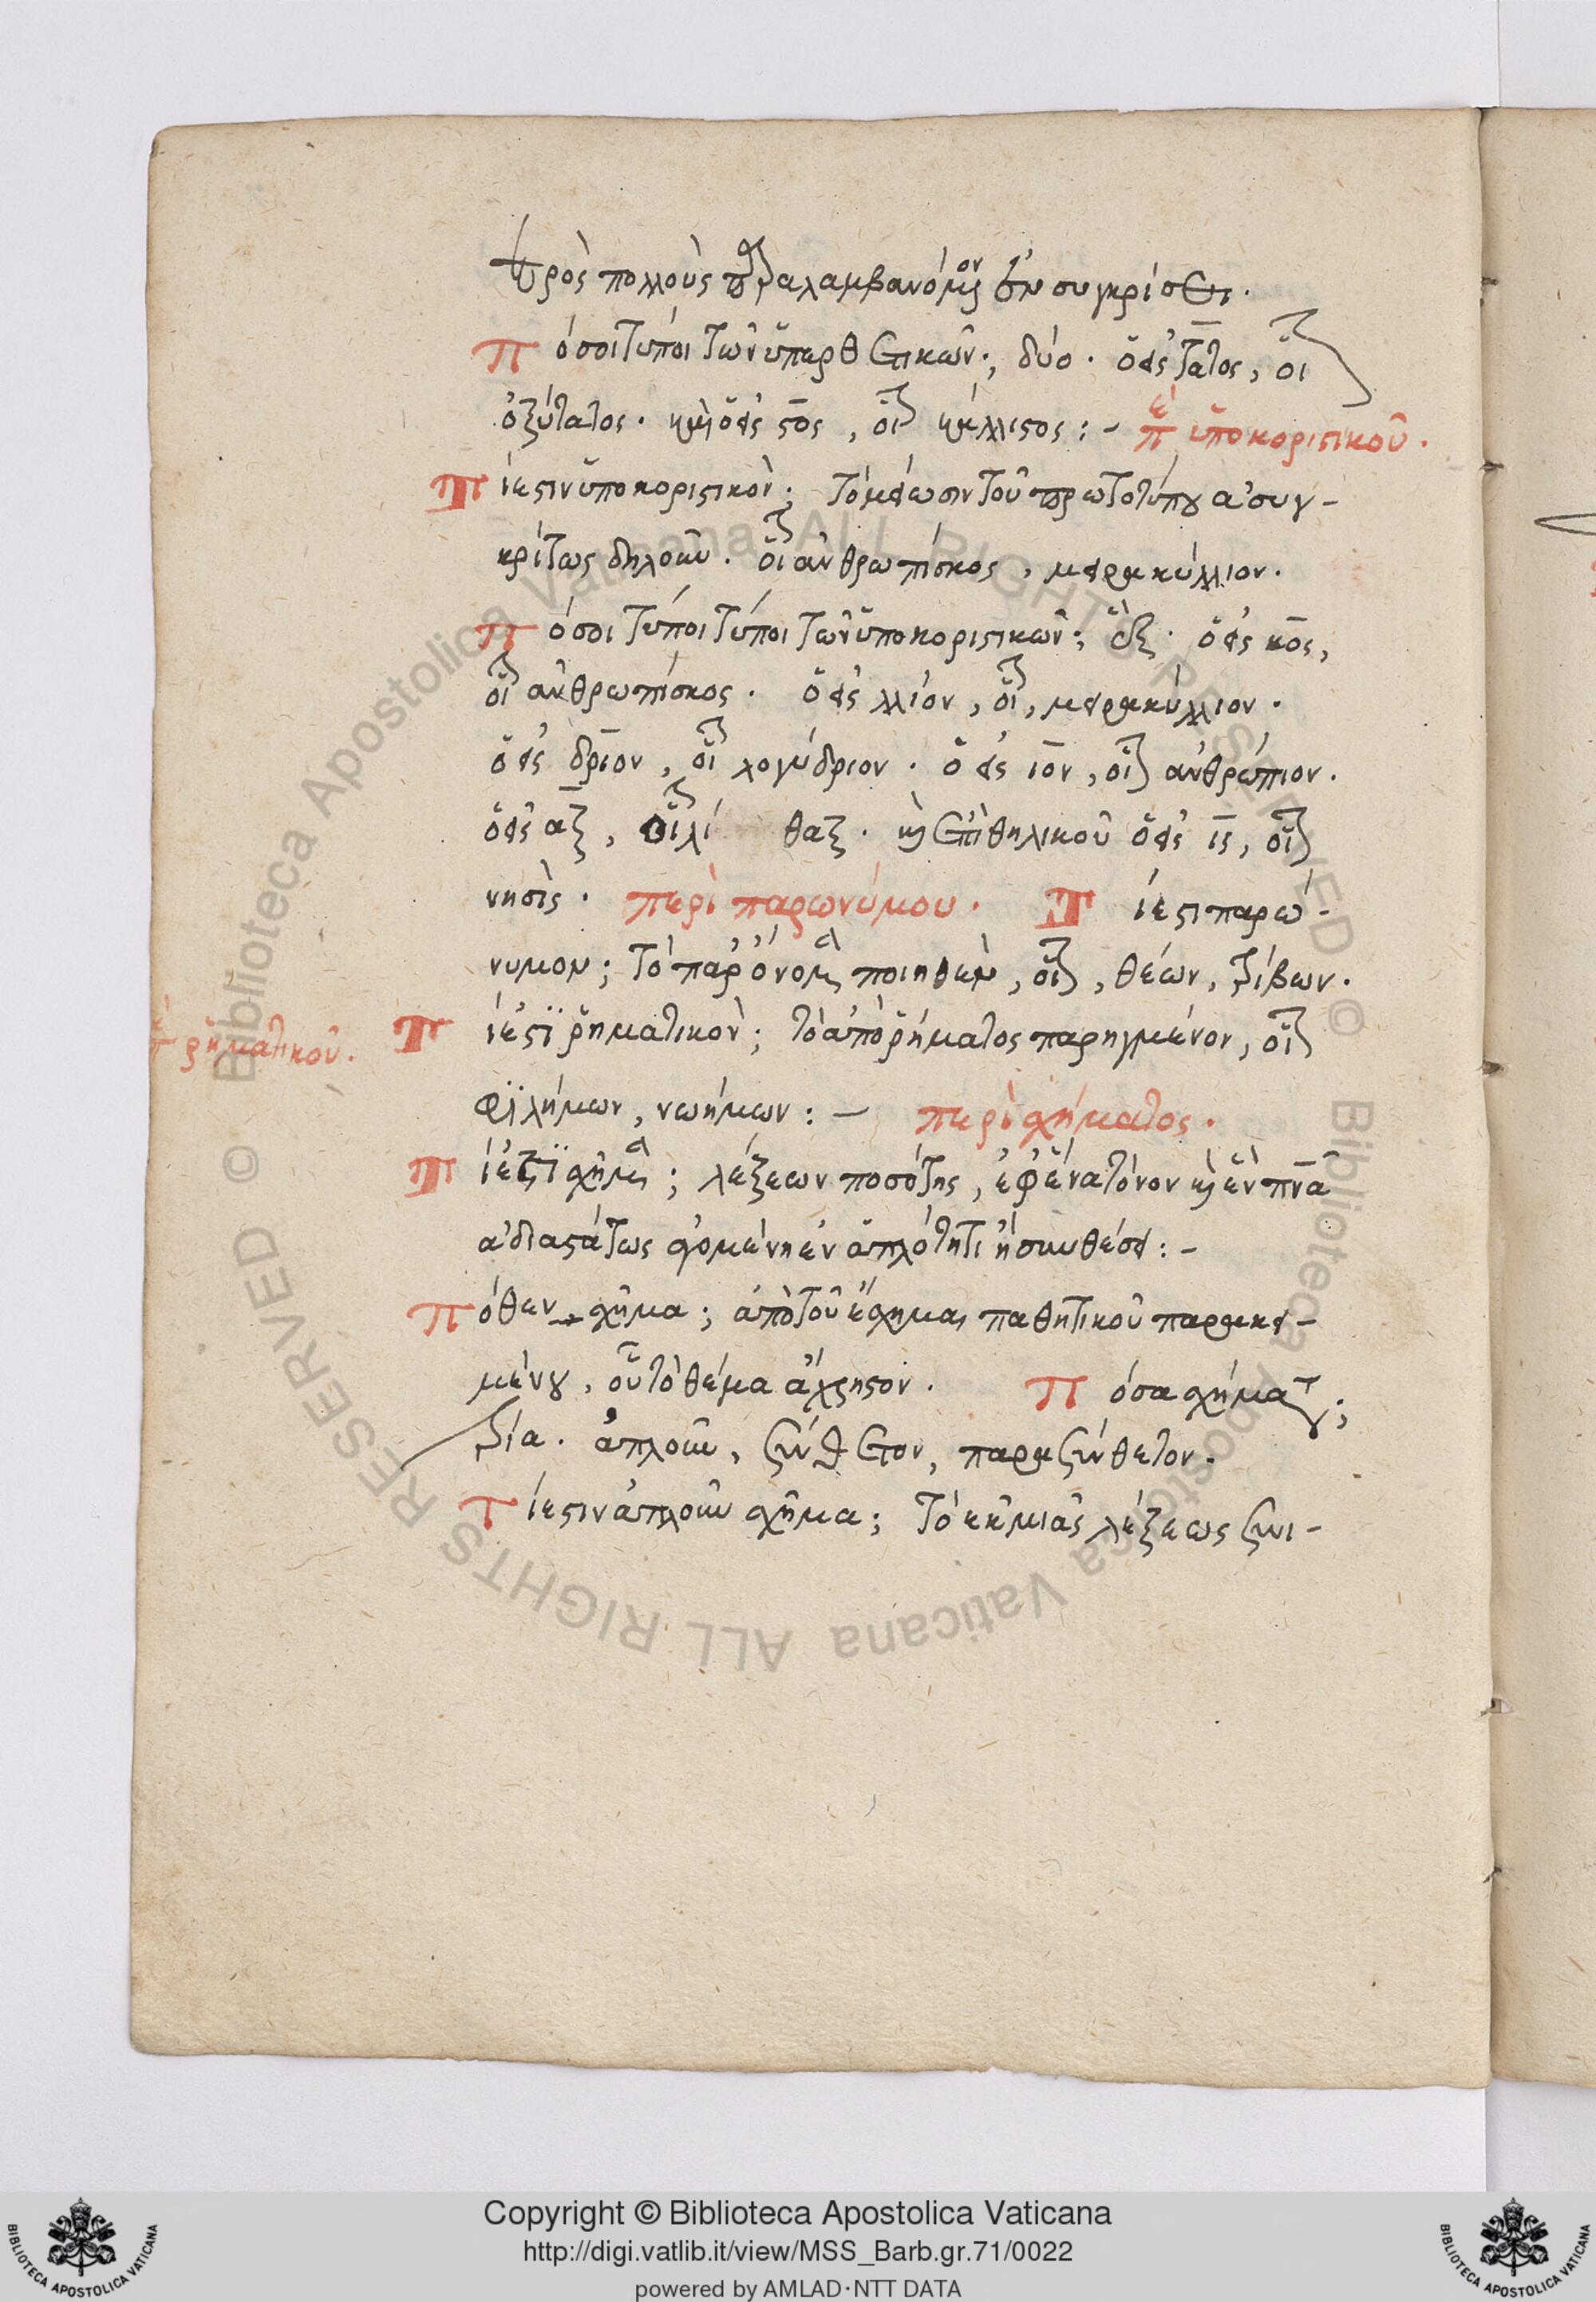 πρὸς πολλοὺς παραλαμβανόμενον ἐν συγκρίσει.
Πόσοι τύποι τῶν ὑπερθετικῶν; δύο. ὁ εἰς τατος, οἷον
ὀξύτατος. καὶ ὁ εἰς στος, οἷον κάλλιστος :- περὶ ὑποκοριστικοῦ.
Τί ἐστιν ὑποκοριστικὸν; τὸ μείωσιν τοῦ πρωτοτύπου ἀσυγ-
κρίτως δηλοῦν. οἷον ἀνθρωπίσκος, μειρακύλλιον.
Πόσοι τύποι τύποι τῶν ὑποκοριστικῶν; ἓξ. ὁ εἰς κος,
οἷον ἀνθρωπίσκος. ὁ εἰς λλιον, οἷον, μειρακύλλιον.
ὁ εἰς δριον, οἷον λογύδριον. ὁ εἰς ιον, οἷον ἀνθρώπιον.
ὁ εἰς αξ, οἷον λίθαξ. καὶ ἐπὶ θηλικοῦ ὁ εἰς ις, οἷον
νησὶς. περὶ παρωνύμου. Τί ἐστι παρώ-
νυμον; τὸ παρ' ὄνομα ποιηθὲν, οἷον, θέων, τρίβων.
περὶ ῥηματικοῦ.
Τί ἐστὶ ῥηματικὸν; τὸ ἀπὸ ῥήματος παρηγμένον, οἷον
φιλήμων, νωήμων :- περὶ σχήματος.
Τί ἐστὶ σχῆμα; λέξεων ποσότης, ἐφ' ἕνα τόνον καὶ ἓν πνεῦμα
ἀδιαστάτως ἀγομένη ἐν ἁπλότητι ἢ συνθέσει :-
Πόθεν σχῆμα; ἀπὸ τοῦ ἔσχημαι παθητικοῦ παρακει-
μένου, οὗ τὸ θέμα ἄχρηστον. Πόσα σχήματα;
τρία. ἁπλοῦν, σύνθετον, παρασύνθετον.
Τί ἐστιν ἁπλοῦν σχῆμα; τὸ ἐκ μιᾶς λέξεως συνι-
Copyright © Biblioteca Apostolica Vaticana
http://digi.vatlib.it/view/MSS_Barb.gr.71/0022
powered by AMLAD·NTT DATA